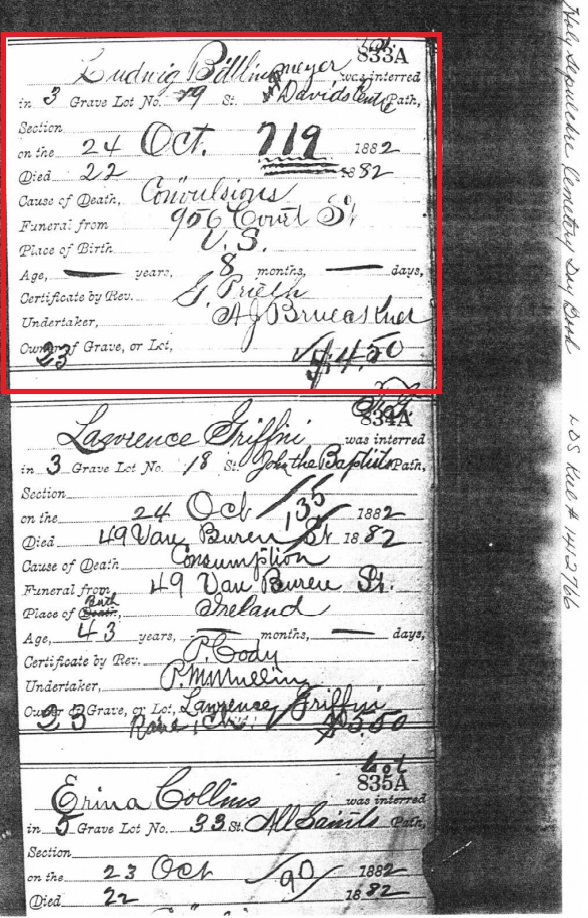 833A
Ludwig Böllinmeyer was interred
in 3 Grave Lot No. 79 St. Davids Path,
Section
on the 24 Oct. 719 1882
Died 22 1882
Cause of Death, Convulsions
Funeral from 956 Court St
Place of Birth U.S.
Age, — years, 8 months, — days,
Certificate by Rev. G.
Undertaker, A J
Owner of Grave, or Lot,
23 $4.50
834A
Lawrence Griffin was interred
in 3 Grave Lot No. 18 St. John the Baptists Path,
Section
on the 24 Oct 135 1882
Died 49 Van Buren St. 1882
Cause of Death Consumption
Funeral from 49 Van Buren St.
Place of Death, Birth Ireland
Age, 43 years, — months, — days,
Certificate by Rev. P. Cody
Undertaker, P. McMullin
Owner of Grave, or Lot, Lawrence Griffin
23 $5.50
Lot
835A
Erina Collins was interred
in 5 Grave Lot No. 33 St. All Saints Path,
Section
on the 23 Oct 90 1882
Died 22 1882
Holy Sepulchre Cemetery Day Book
LDS Reel # 1412766